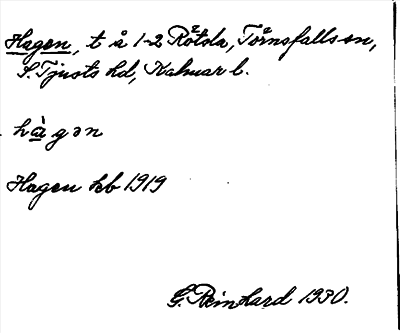 Hagen, t å 1-2 Råtsla, Törnsfalls sn,
S. Tjusts hd, Kalmar l.
hàgən
Hagen kb 1919
G. Reinhard 1930.